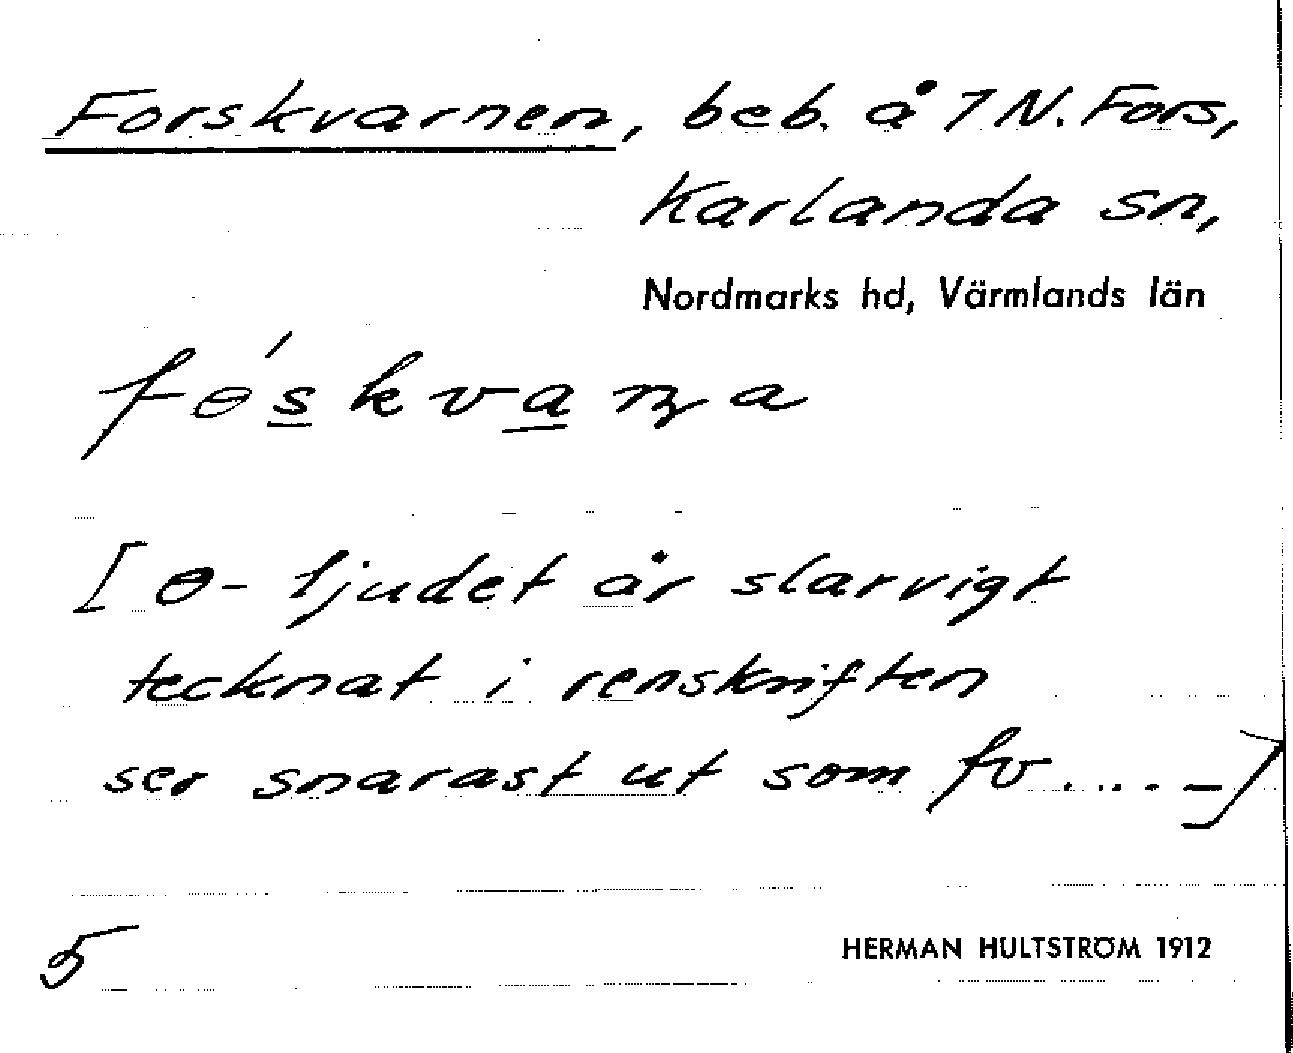 Forskvarnen, beb. å 7 N. Fors,
Karlanda sn,
Nordmarks hd, Värmlands län
fɵ́skvaɳa
[ɵ- ljudet är slarvigt
tecknat i renskriften
ser snarast ut som fv .... -]
5
HERMAN HULTSTRÖM 1912